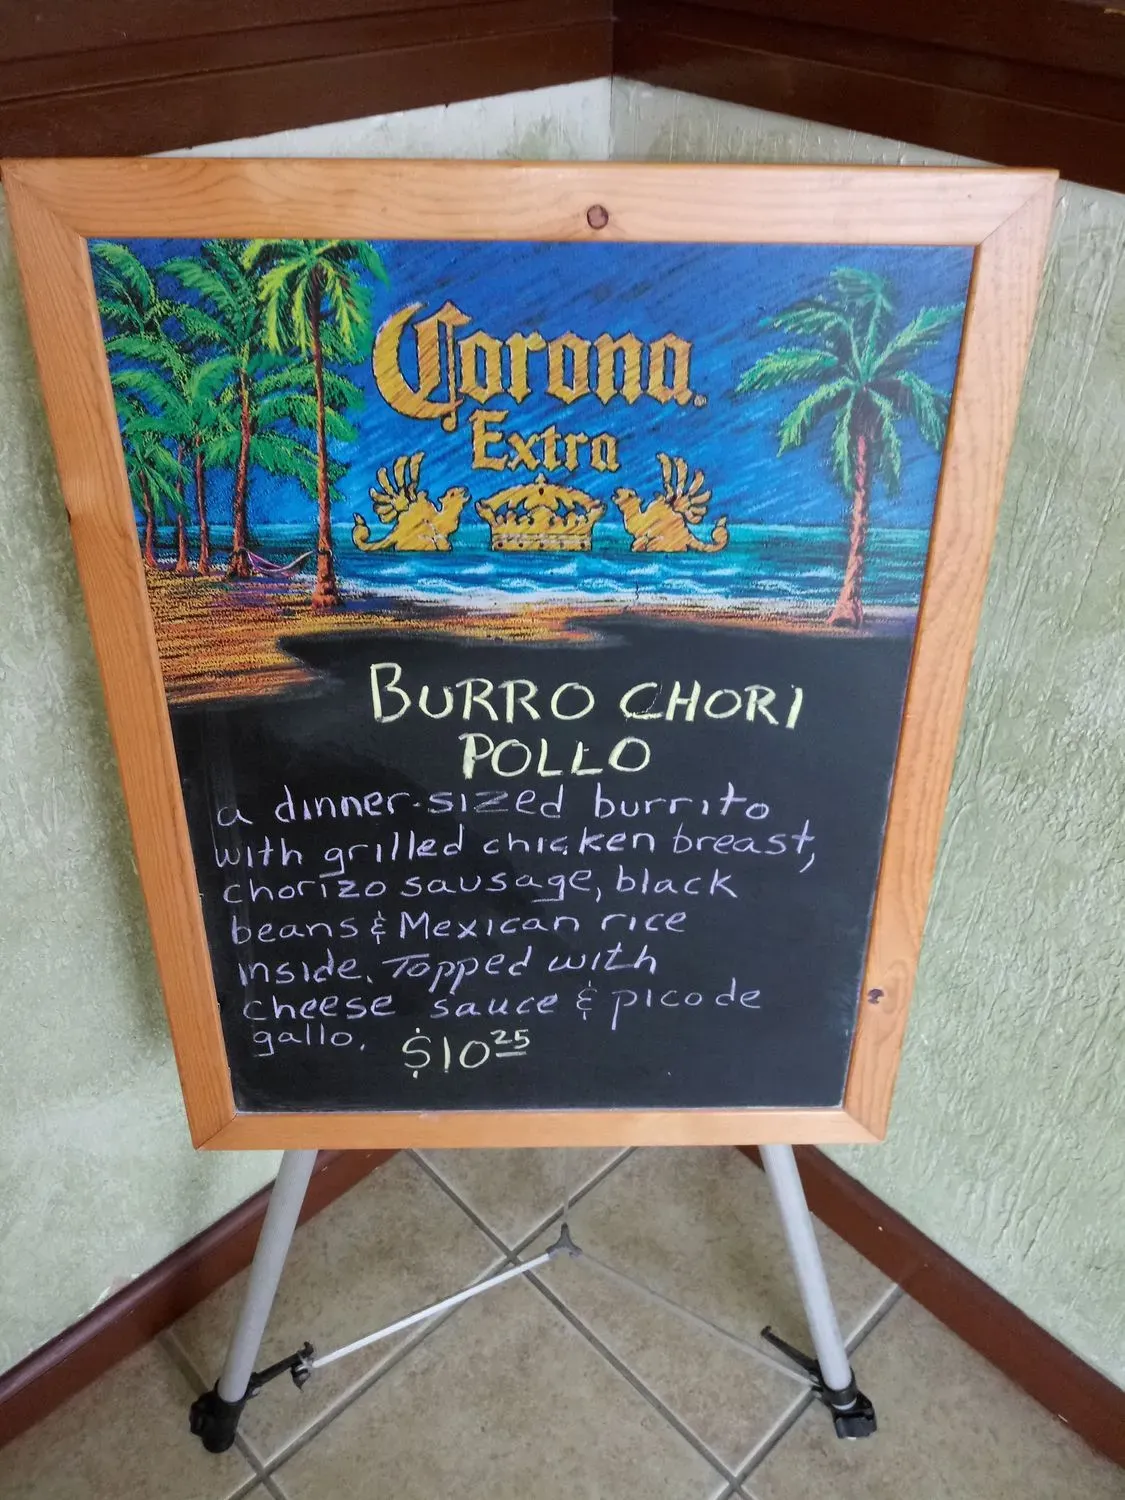 Corona
Extra
BURRO CHORI
POLLO
a dinner-sized burrito
with grilled chicken breast,
chorizo sausage, black
beans & Mexican rice
inside. Topped with
cheese sauce & pico de
gallo. $10 25